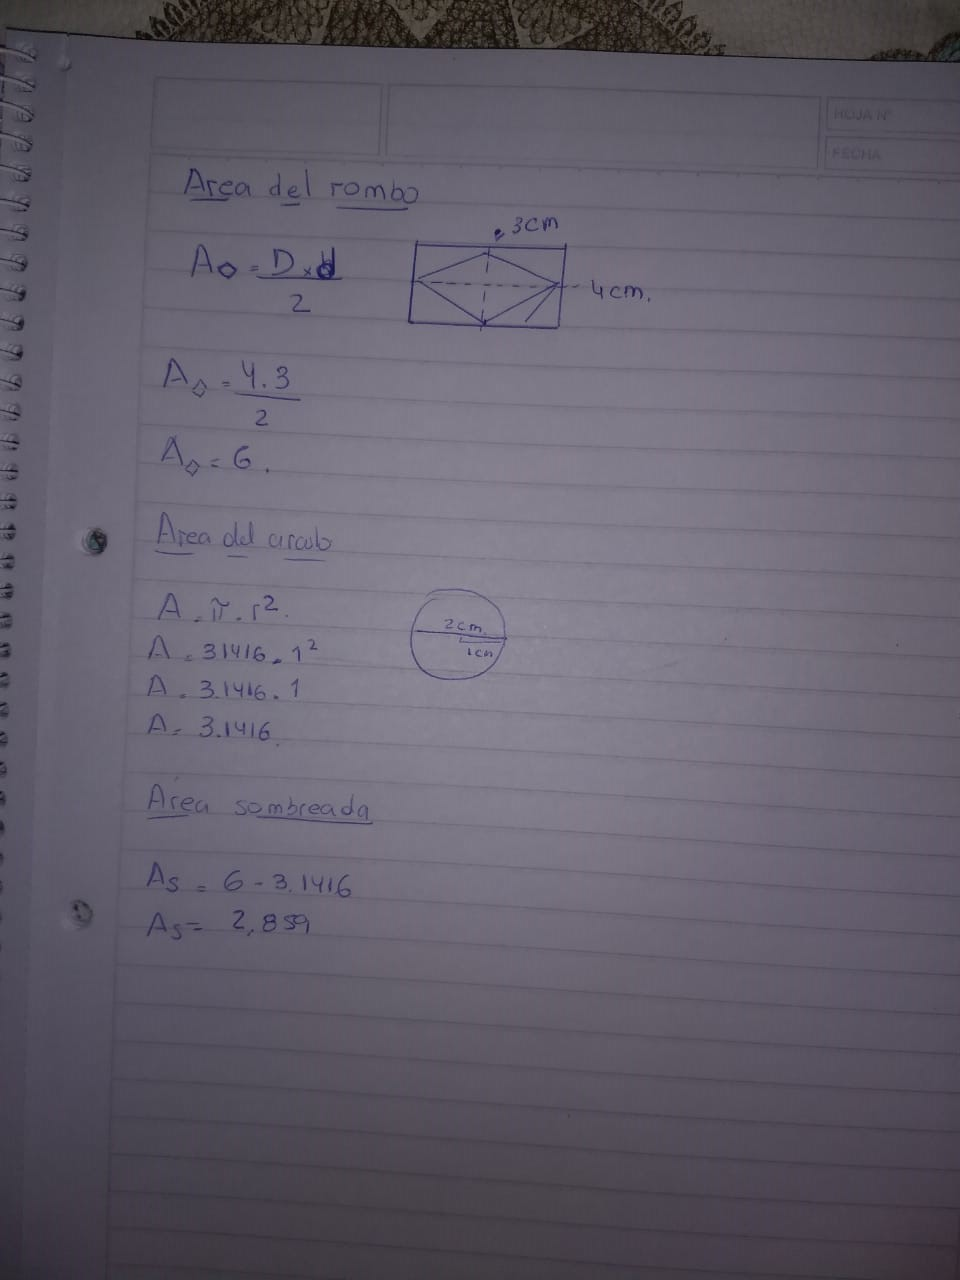 HOJA Nº
FECHA
Area del rombo
3cm
A◇ = D x d
2
4cm.
A◇ = 4.3
2
A◇ = 6.
Area del circulo
A = π . r².
2cm.
1cm
A = 31416 . 1²
A = 3.1416 . 1
A = 3.1416.
Area sombreada
As = 6 - 3.1416
As = 2,859